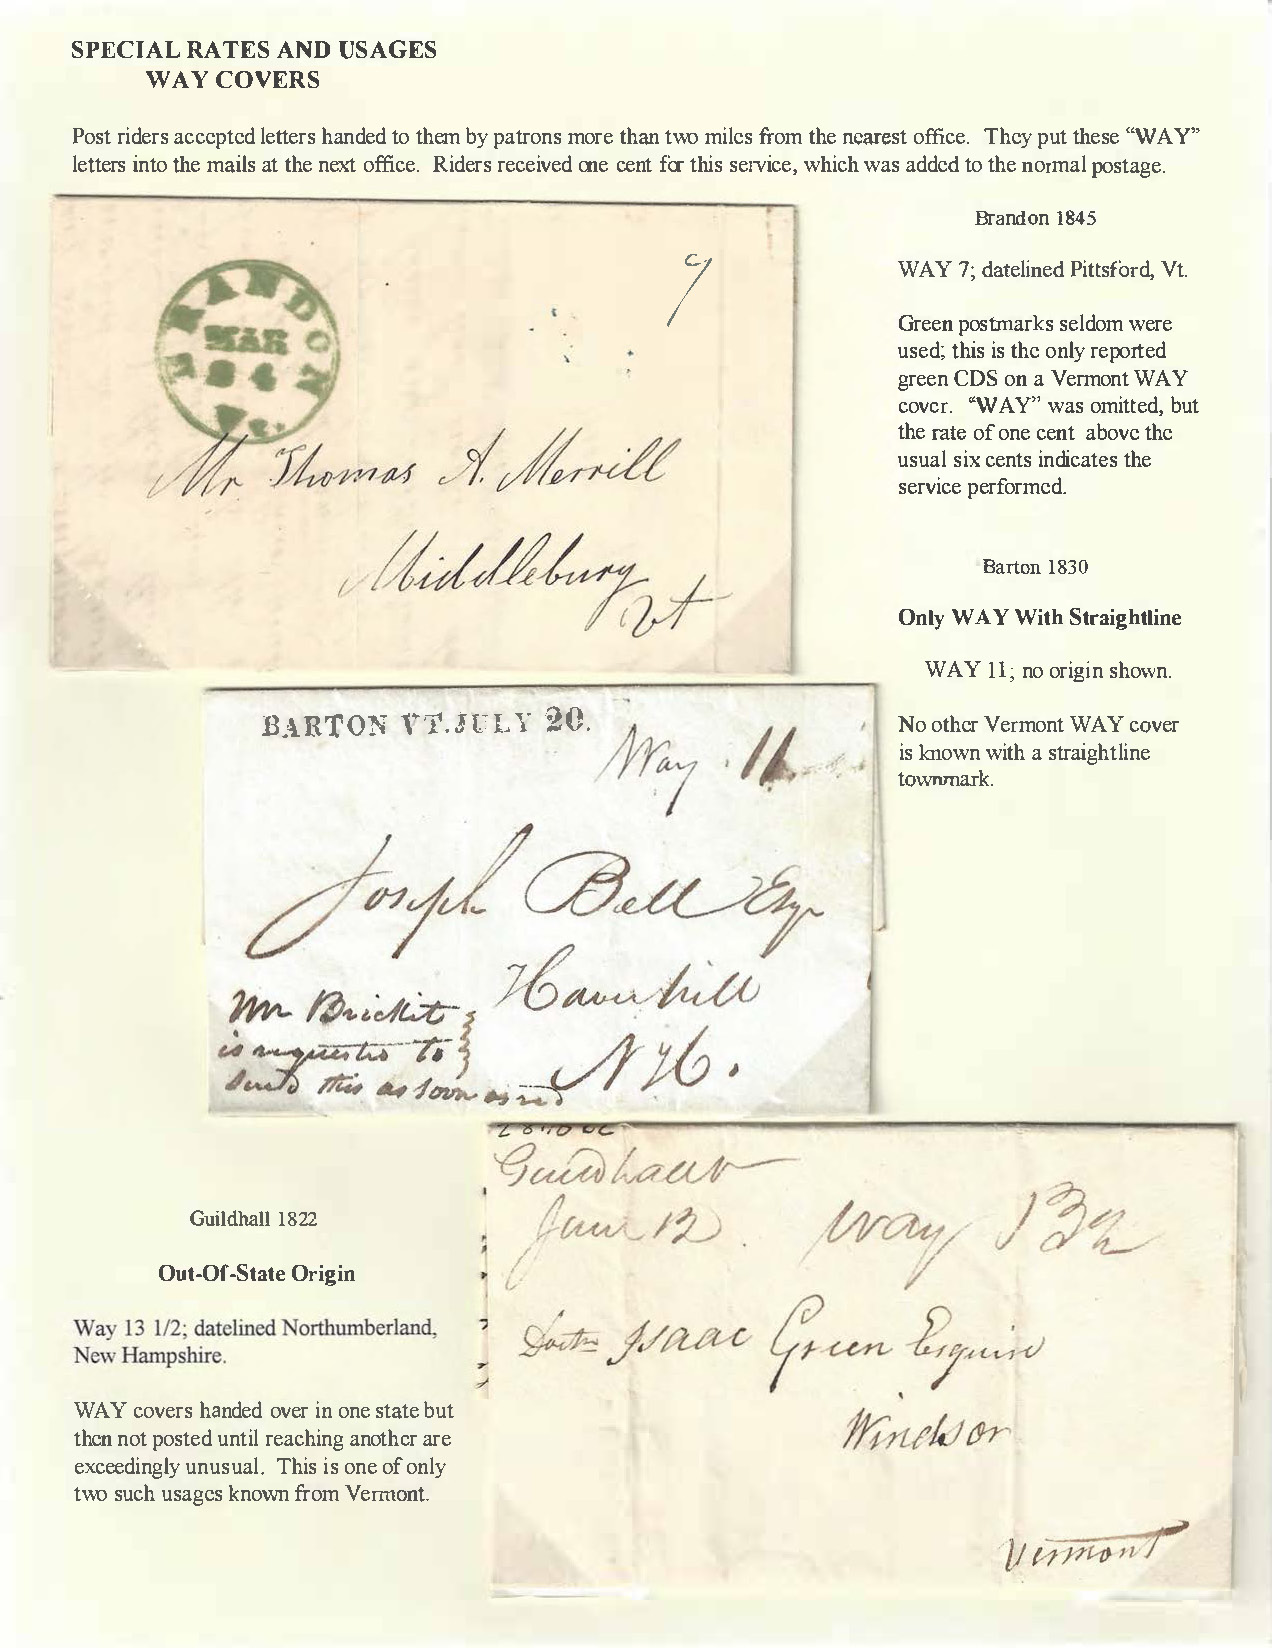 SPECIAL RATES AND USAGES
WAY COVERS
Post riders accepted letters handed to them by patrons more than two miles from the nearest office. They put these “WAY”
letters into the mails at the next office. Riders received one cent for this service, which was added to the normal postage.
Brandon 1845
WAY 7; datelined Pittsford, Vt.
Green postmarks seldom were
used; this is the only reported
green CDS on a Vermont WAY
cover. “WAY” was omitted, but
the rate of one cent above the
usual six cents indicates the
service performed.
BRANDON
MAR
Vt.
7
Mr Thomas A. Merrill
Middlebury
Vt
Barton 1830
Only WAY With Straightline
WAY 11; no origin shown.
No other Vermont WAY cover
is known with a straightline
townmark.
BARTON VT. JULY 20.
Way 11
Joseph Bell Esqr
Haverhill
N H.
Mr Brickit
is requested to
send this as soon as
Guildhall 1822
Out-Of-State Origin
Way 13 1/2; datelined Northumberland,
New Hampshire.
WAY covers handed over in one state but
then not posted until reaching another are
exceedingly unusual. This is one of only
two such usages known from Vermont.
Guildhall Vt
June 12. Way 13½
Isaac Green Esquire
Windsor
Vermont